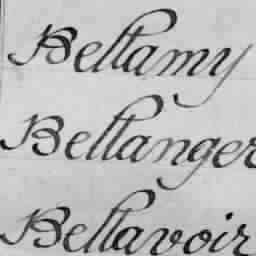 Bellamy
Bellanger
Bellavoir